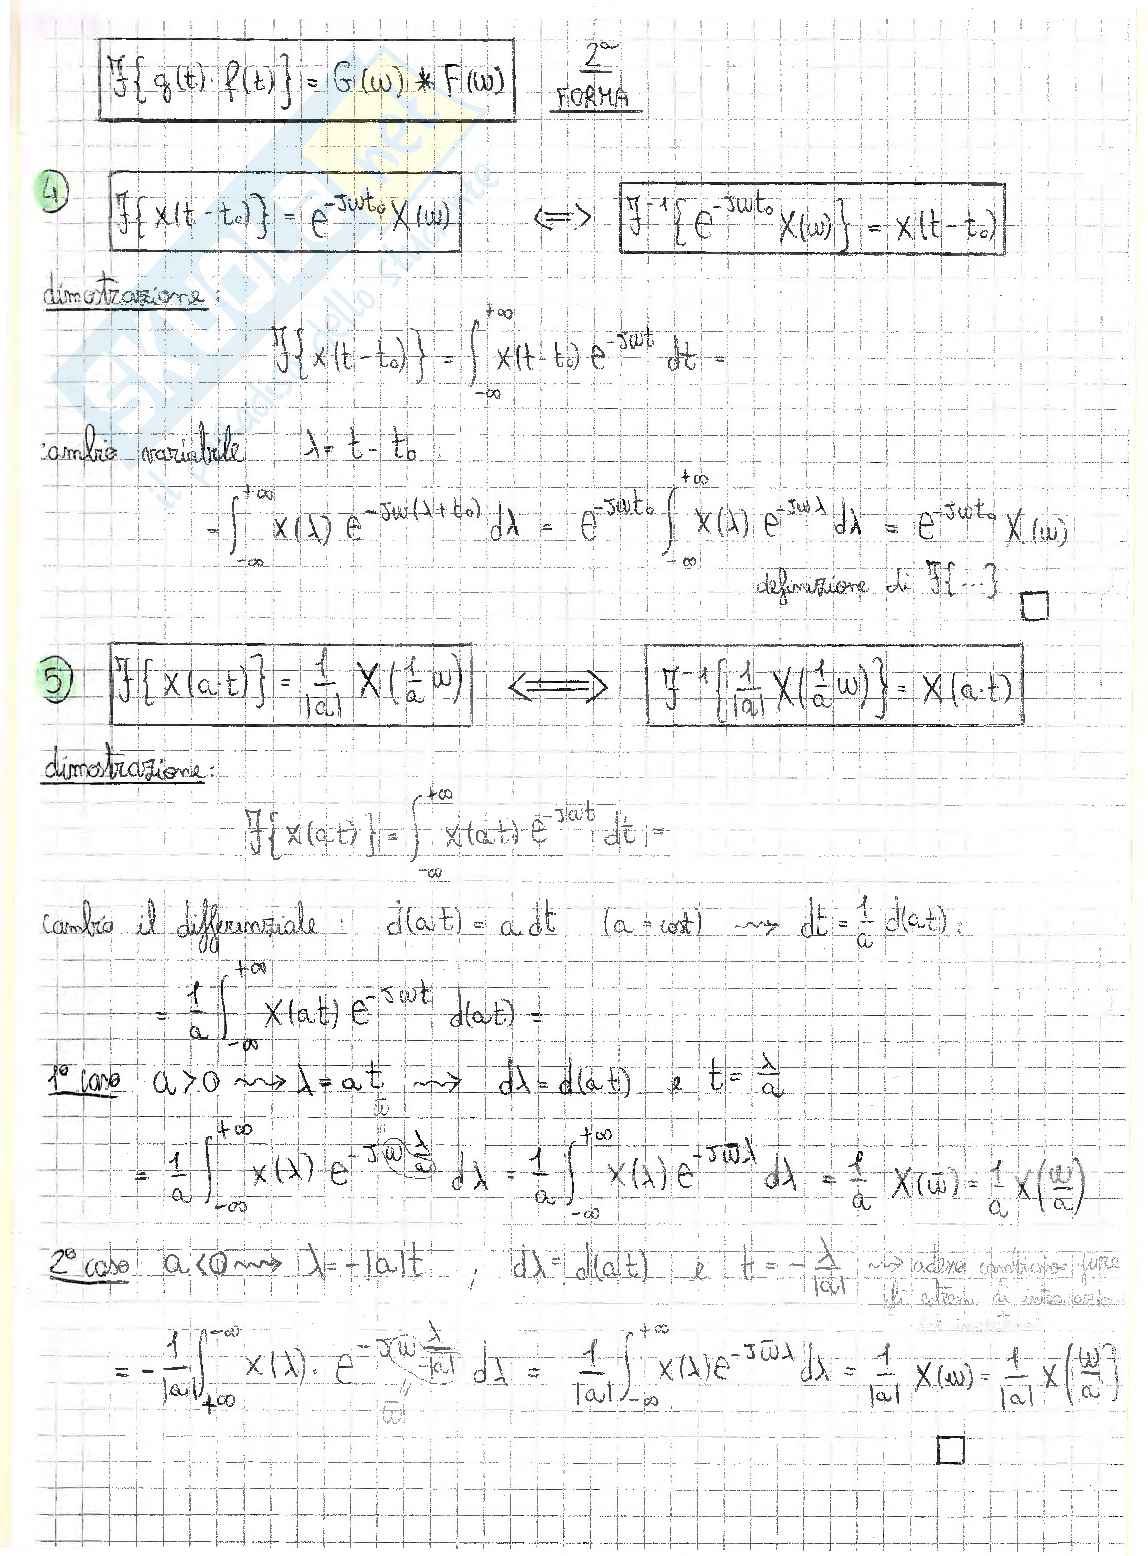 ℱ{g(t)·f(t)} = G(ω) * F(ω) 2ª FORMA
4) ℱ{x(t-t₀)} = e^{-jωt₀} X(ω) ⟺ ℱ⁻¹{e^{-jωt₀} X(ω)} = x(t-t₀)
dimostrazione:
ℱ{x(t-t₀)} = ∫_{-∞}^{+∞} x(t-t₀) e^{-jωt} dt =
cambio variabile λ = t - t₀
= ∫_{-∞}^{+∞} x(λ) e^{-jω(λ+t₀)} dλ = e^{-jωt₀} ∫_{-∞}^{+∞} x(λ) e^{-jωλ} dλ = e^{-jωt₀} X(ω)
definizione di ℱ{...} □
5) ℱ{x(a·t)} = 1/|a| X(1/a ω) ⟺ ℱ⁻¹{1/|a| X(1/a ω)} = x(a·t)
dimostrazione:
ℱ{x(at)} = ∫_{-∞}^{+∞} x(at) e^{-jat} dt =
cambio il differenziale: d(at) = a dt (a = cost) ⇝ dt = 1/a d(at):
= 1/a ∫_{-∞}^{+∞} x(at) e^{-jωt} d(at) =
1º caso a>0 ⇝ λ = at ⇝ dλ = d(at) e t = λ/a
= 1/a ∫_{-∞}^{+∞} x(λ) e^{-jω λ/a} dλ = 1/a ∫_{-∞}^{+∞} x(λ) e^{-jω̄λ} dλ = 1/a X(ω̄) = 1/a X(ω/a)
2º caso a<0 ⇝ λ = -|a|t , dλ = d(at) e t = -λ/|a| ⇝
= -1/|a| ∫_{+∞}^{-∞} x(λ)· e^{-jω λ/-|a|} dλ = 1/|a| ∫_{-∞}^{+∞} x(λ) e^{-jω̄λ} dλ = 1/|a| X(ω) = 1/|a| X(ω/a)
ω̄
□
SKUOLA.net